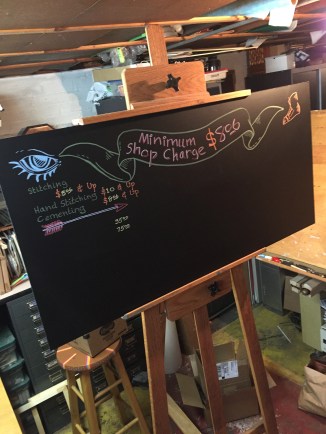 Minimum
Shop Charge $8.50
Stitching
$8.50 & Up
Hand Stitching $10 & Up
Cementing $8.50 & Up
35.00
75.00